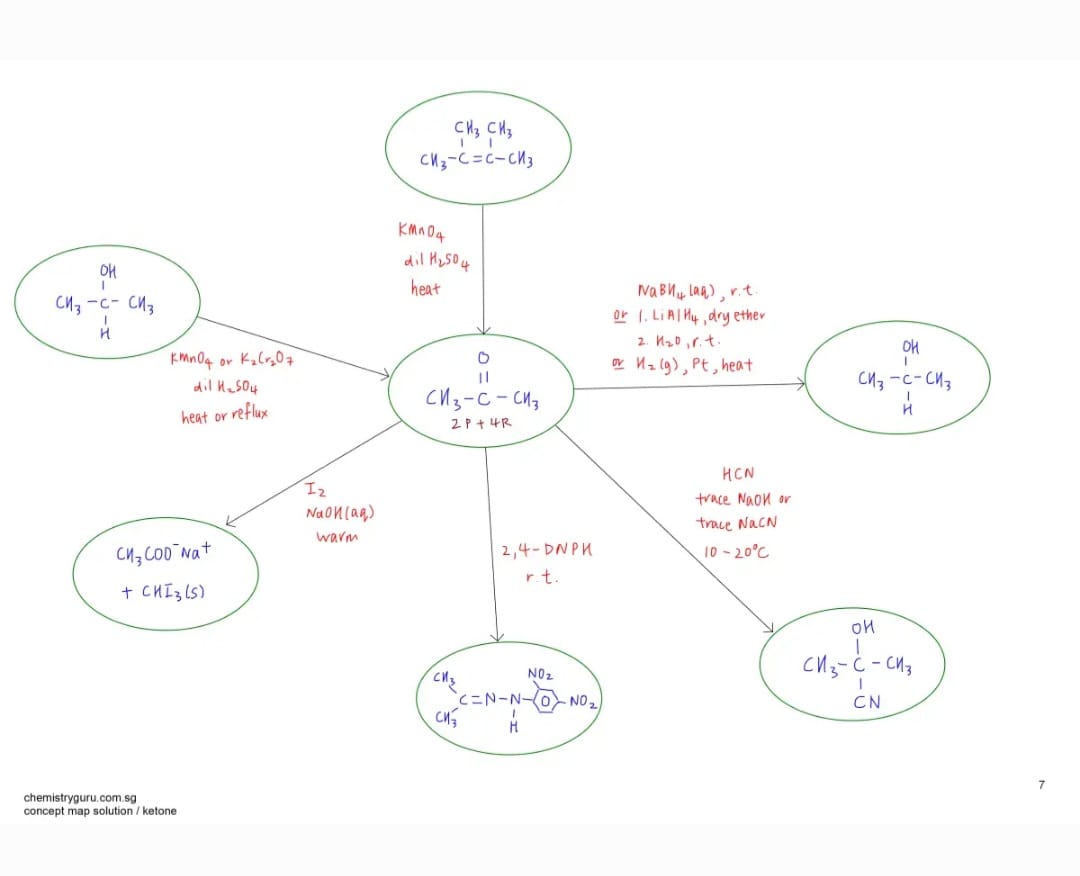 CH3 CH3
CH3-C=C-CH3
KMnO4
dil H2SO4
heat
OH
CH3-C-CH3
H
KMnO4 or K2Cr2O7
dil H2SO4
heat or reflux
O
CH3-C-CH3
2P+4R
NaBH4(aq), r.t.
or 1. LiAlH4, dry ether
2. H2O, r.t.
or H2(g), Pt, heat
OH
CH3-C-CH3
H
I2
NaOH(aq)
warm
CH3COO-Na+
+ CHI3(s)
2,4-DNPH
r.t.
CH3
NO2
C=N-N-
-NO2
CH3
H
HCN
trace NaOH or
trace NaCN
10-20°C
OH
CH3-C-CH3
CN
7
chemistryguru.com.sg
concept map solution / ketone